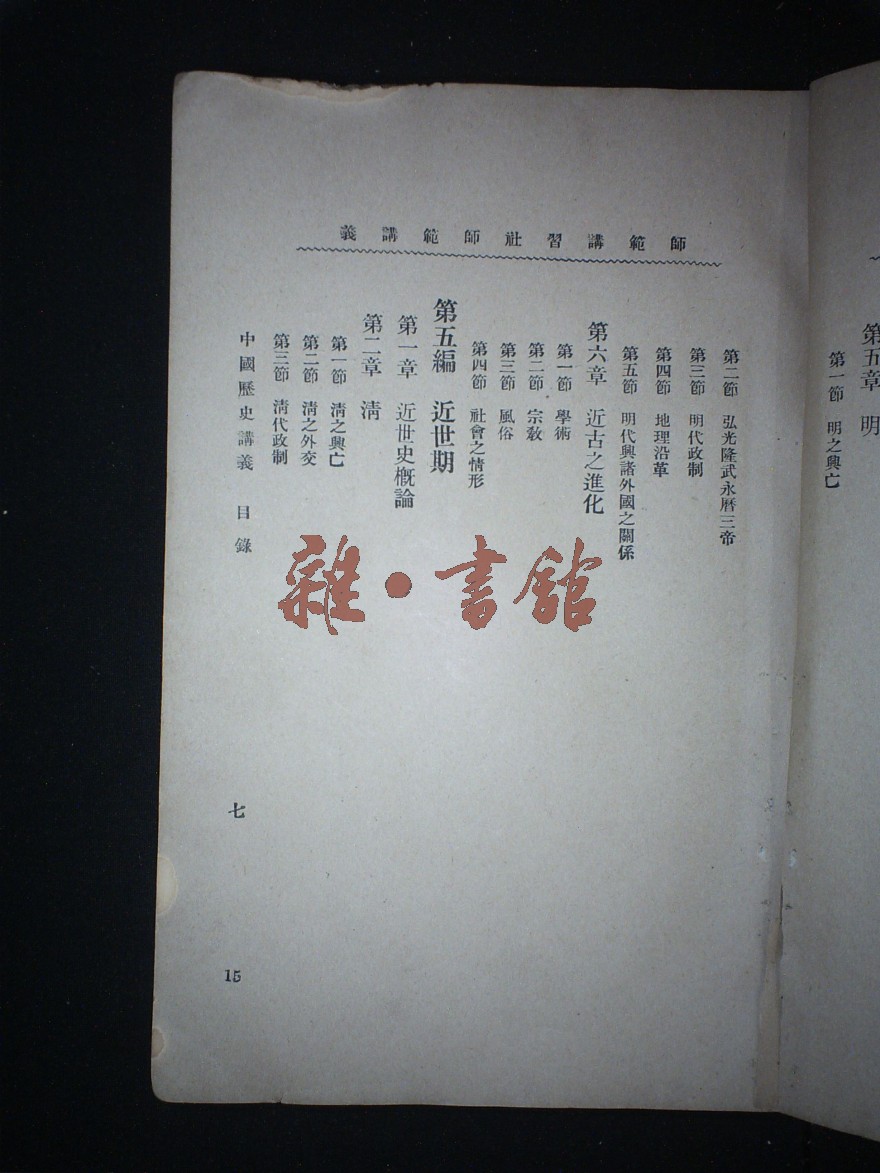 第五章 明
第一節 明之興亡
師範講習社師範講義
第二節 弘光隆武永曆三帝
第三節 明代政制
第四節 地理沿革
第五節 明代與諸外國之關係
第六章 近古之進化
第一節 學術
第二節 宗教
第三節 風俗
第四節 社會之情形
第五編 近世期
第一章 近世史概論
第二章 清
第一節 清之興亡
第二節 清之外交
第三節 清代政制
中國歷史講義 目錄
七
15
雜•書館